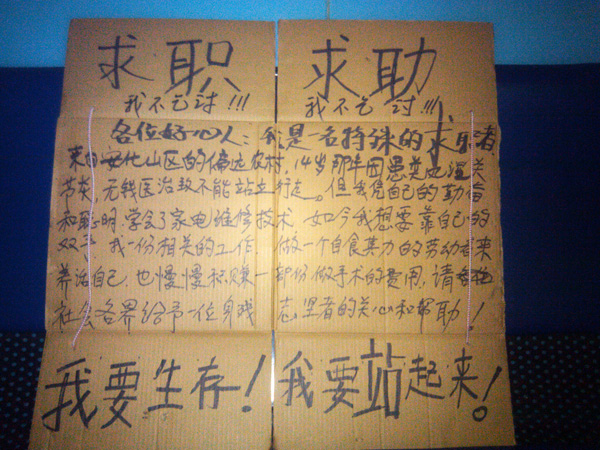 求职 求助
我不乞讨!!! 我不乞讨!!!
各位好心人:我是一名特殊的求职者,
来自安化山区的偏远农村,14岁那年因患类风湿关
节炎,无钱医治致不能站立行走。但我凭自己的勤奋
和聪明,学会了家电维修技术,如今我想要靠自己的
双手,找一份相关的工作,做一个自食其力的劳动者来
养活自己,也慢慢积赚一部份做手术的费用,请
社会各界给予一位身残志坚者的关心和帮助!
我要生存!我要站起来!